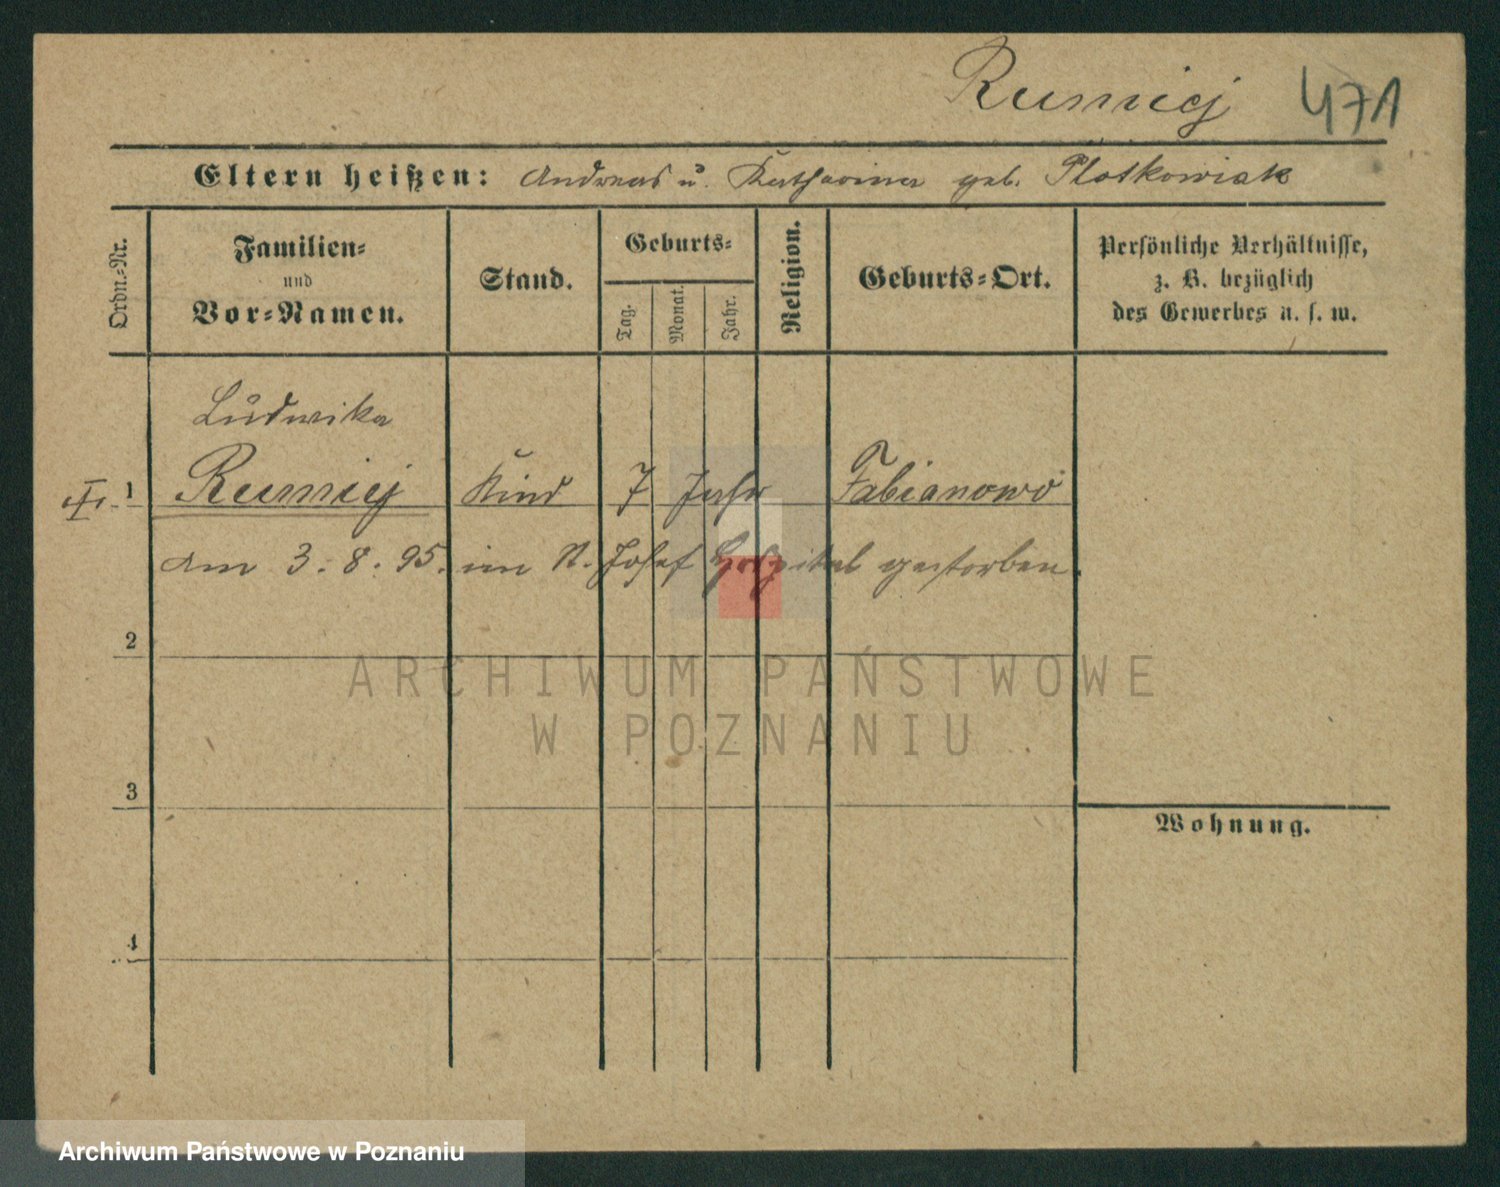 Rumiej 471
Eltern heißen: Andreas u. Katharina geb. Plotkowiak
Ordn.-Nr.
Familien-
und
Vor-Namen.
Stand.
Geburts-
Tag.
Monat.
Jahr.
Religion.
Geburts-Ort.
Persönliche Verhältnisse,
z. B. bezüglich
des Gewerbes u. s. w.
Ludwika
1 Rumiej Kind 7 Jahr Fabianowo
am 3.8.95. im St. Josef Hospital gestorben.
2
3
4
Wohnung.
ARCHIWUM PAŃSTWOWE
W POZNANIU
Archiwum Państwowe w Poznaniu